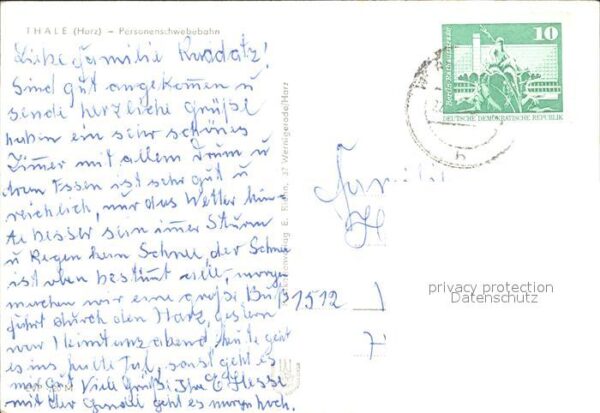 THALE (Harz) – Personenschwebebahn
Liebe Familie Raddatz!
Sind gut angekommen u
sende herzliche Grüße
haben ein sehr schönes
Zimer mit allem Drum u
dran Essen ist sehr gut u
reichlich, nur das Wetter könn
te besser sein imer Sturm
u Regen kein Schnee, der Schnee
ist oben bestimt alle, morgen
machen wir eine große Buß
fahrt durch den Harz, gestern
war Heimatabend, heute geht
es ins Tal, sonst geht es
mir gut Viele Grüße
mit der geht es morgen hoch.
37 Wernigerode/Harz
Berlin-Rathausstraße
10
DEUTSCHE DEMOKRATISCHE REPUBLIK
b
Famili
1512
privacy protection
Datenschutz